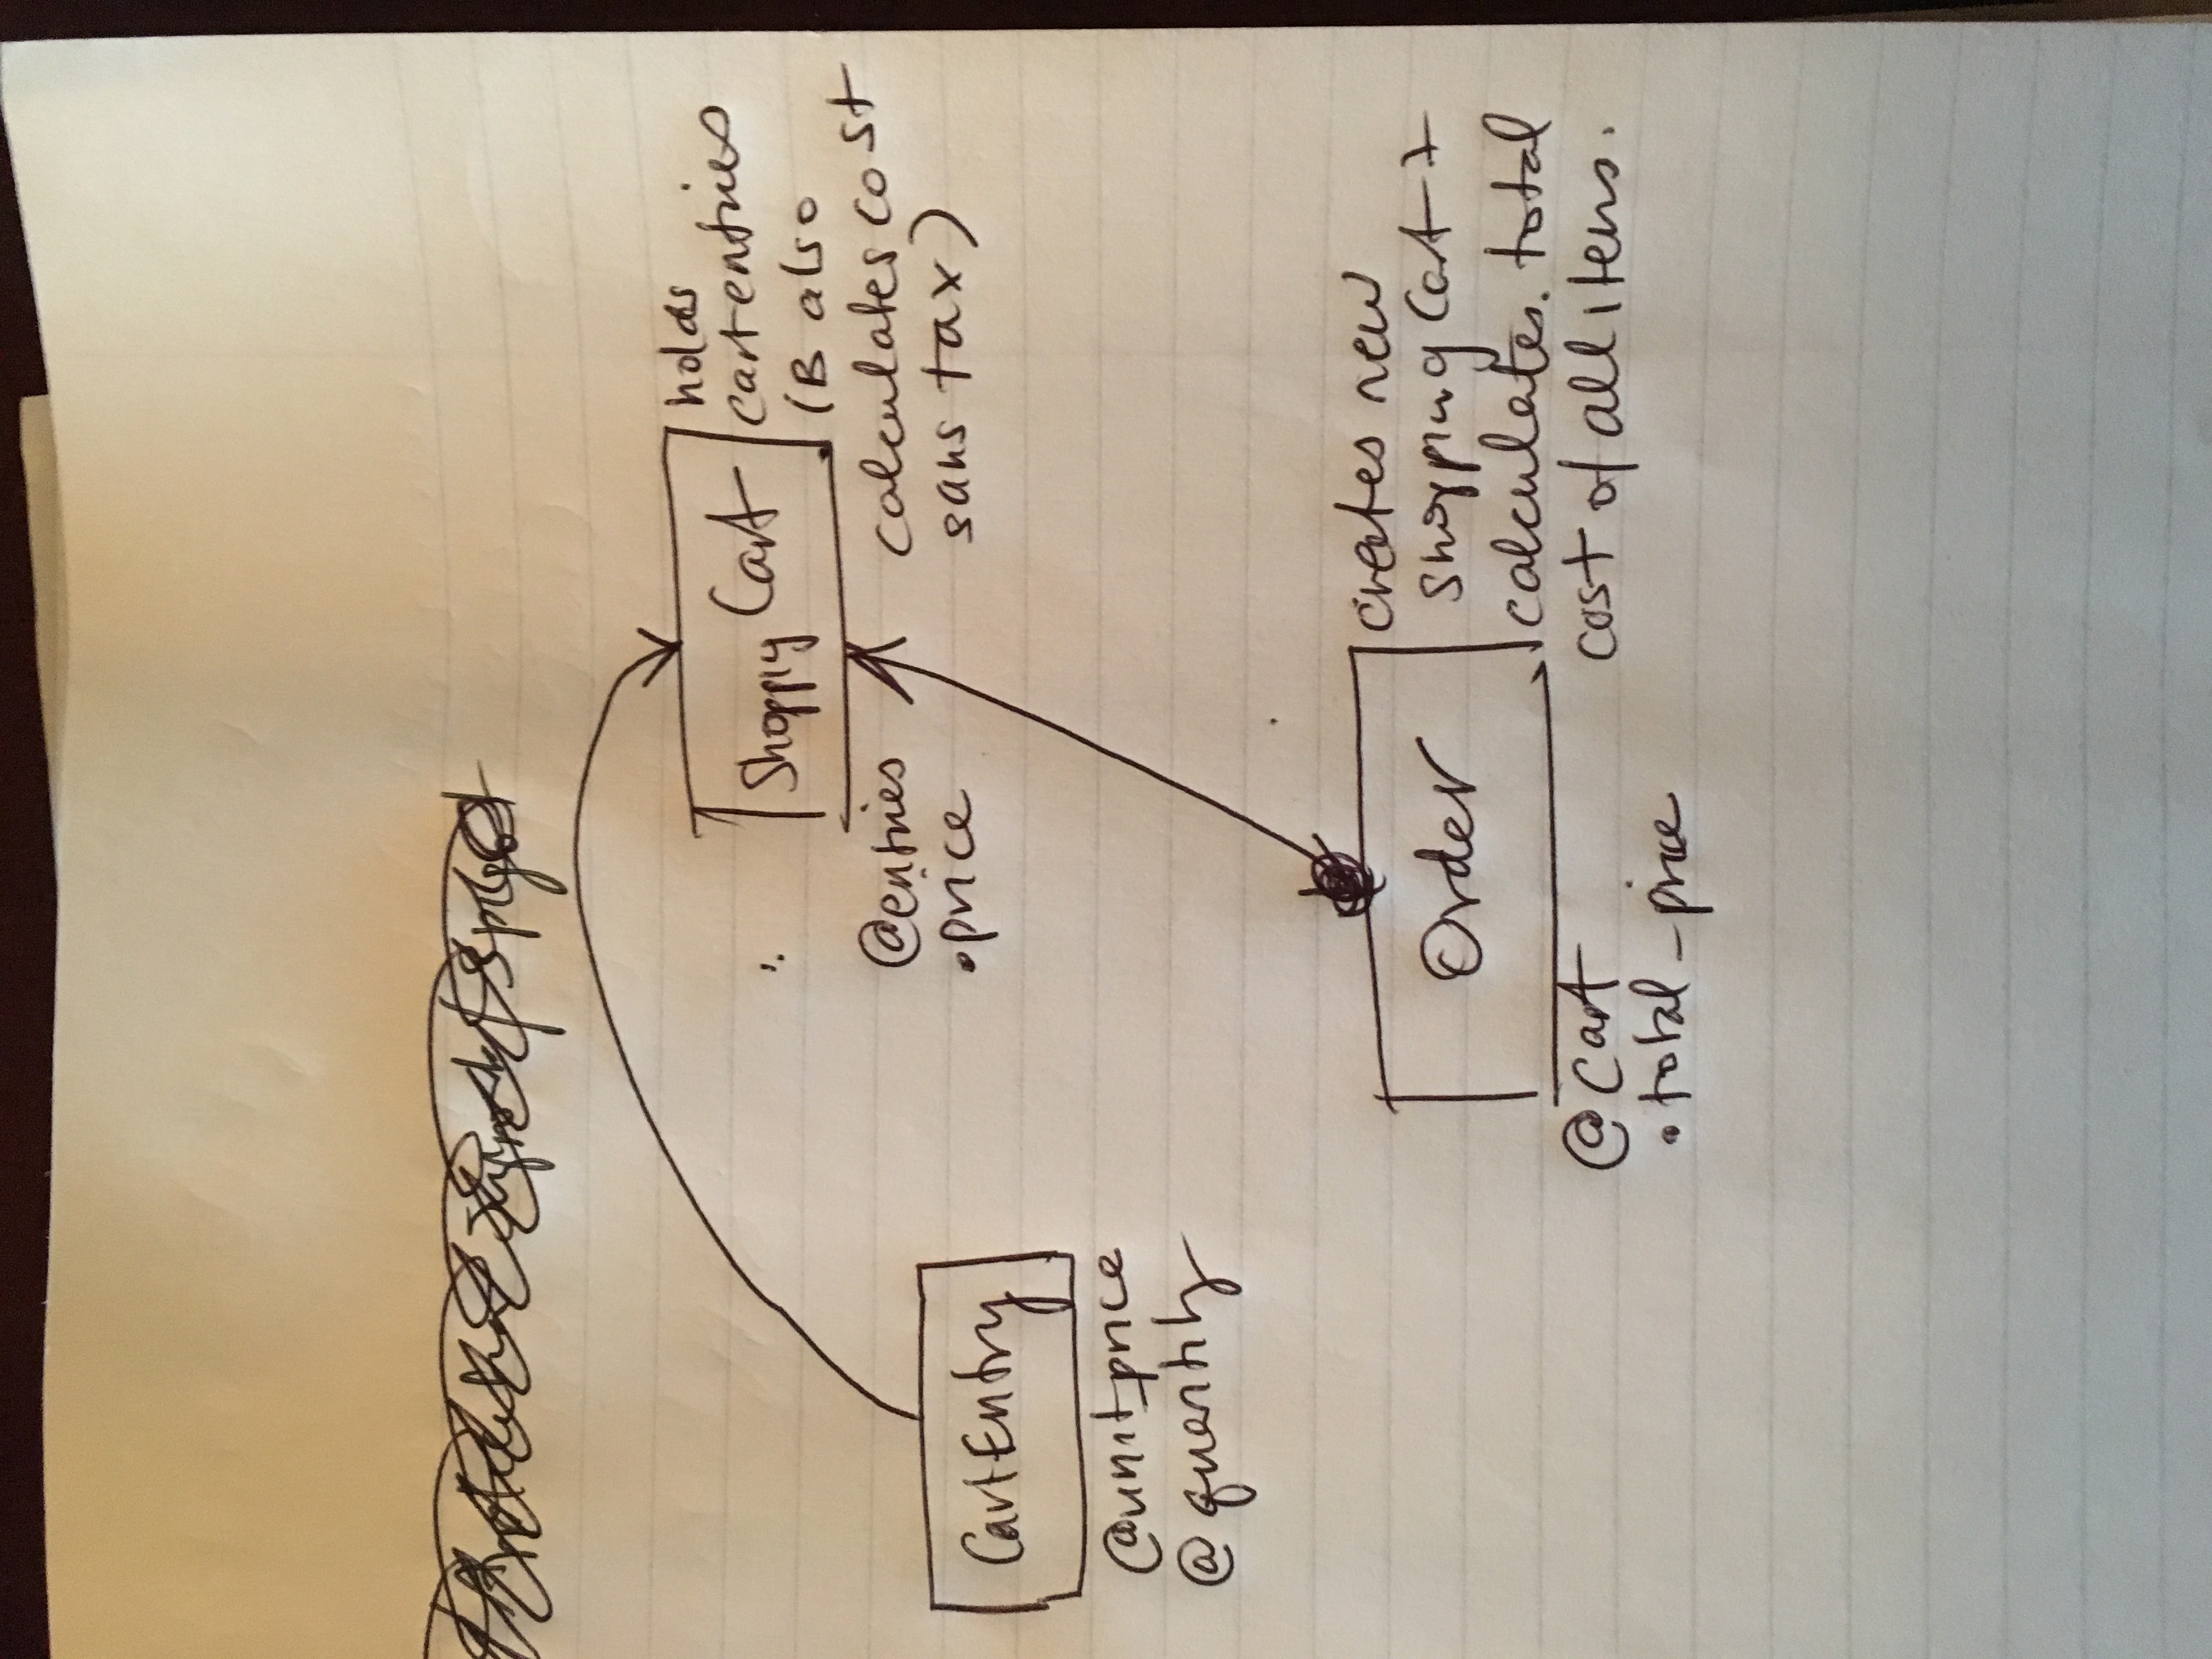 Shoppig Cart
holds
cart entries
(B also
calculates cost
sans tax)
@entries
.price
CartEntry
@unit_price
@quantity
Order
creates new
shopping Cart +
calculates. total
cost of all items.
@cart
.total_price